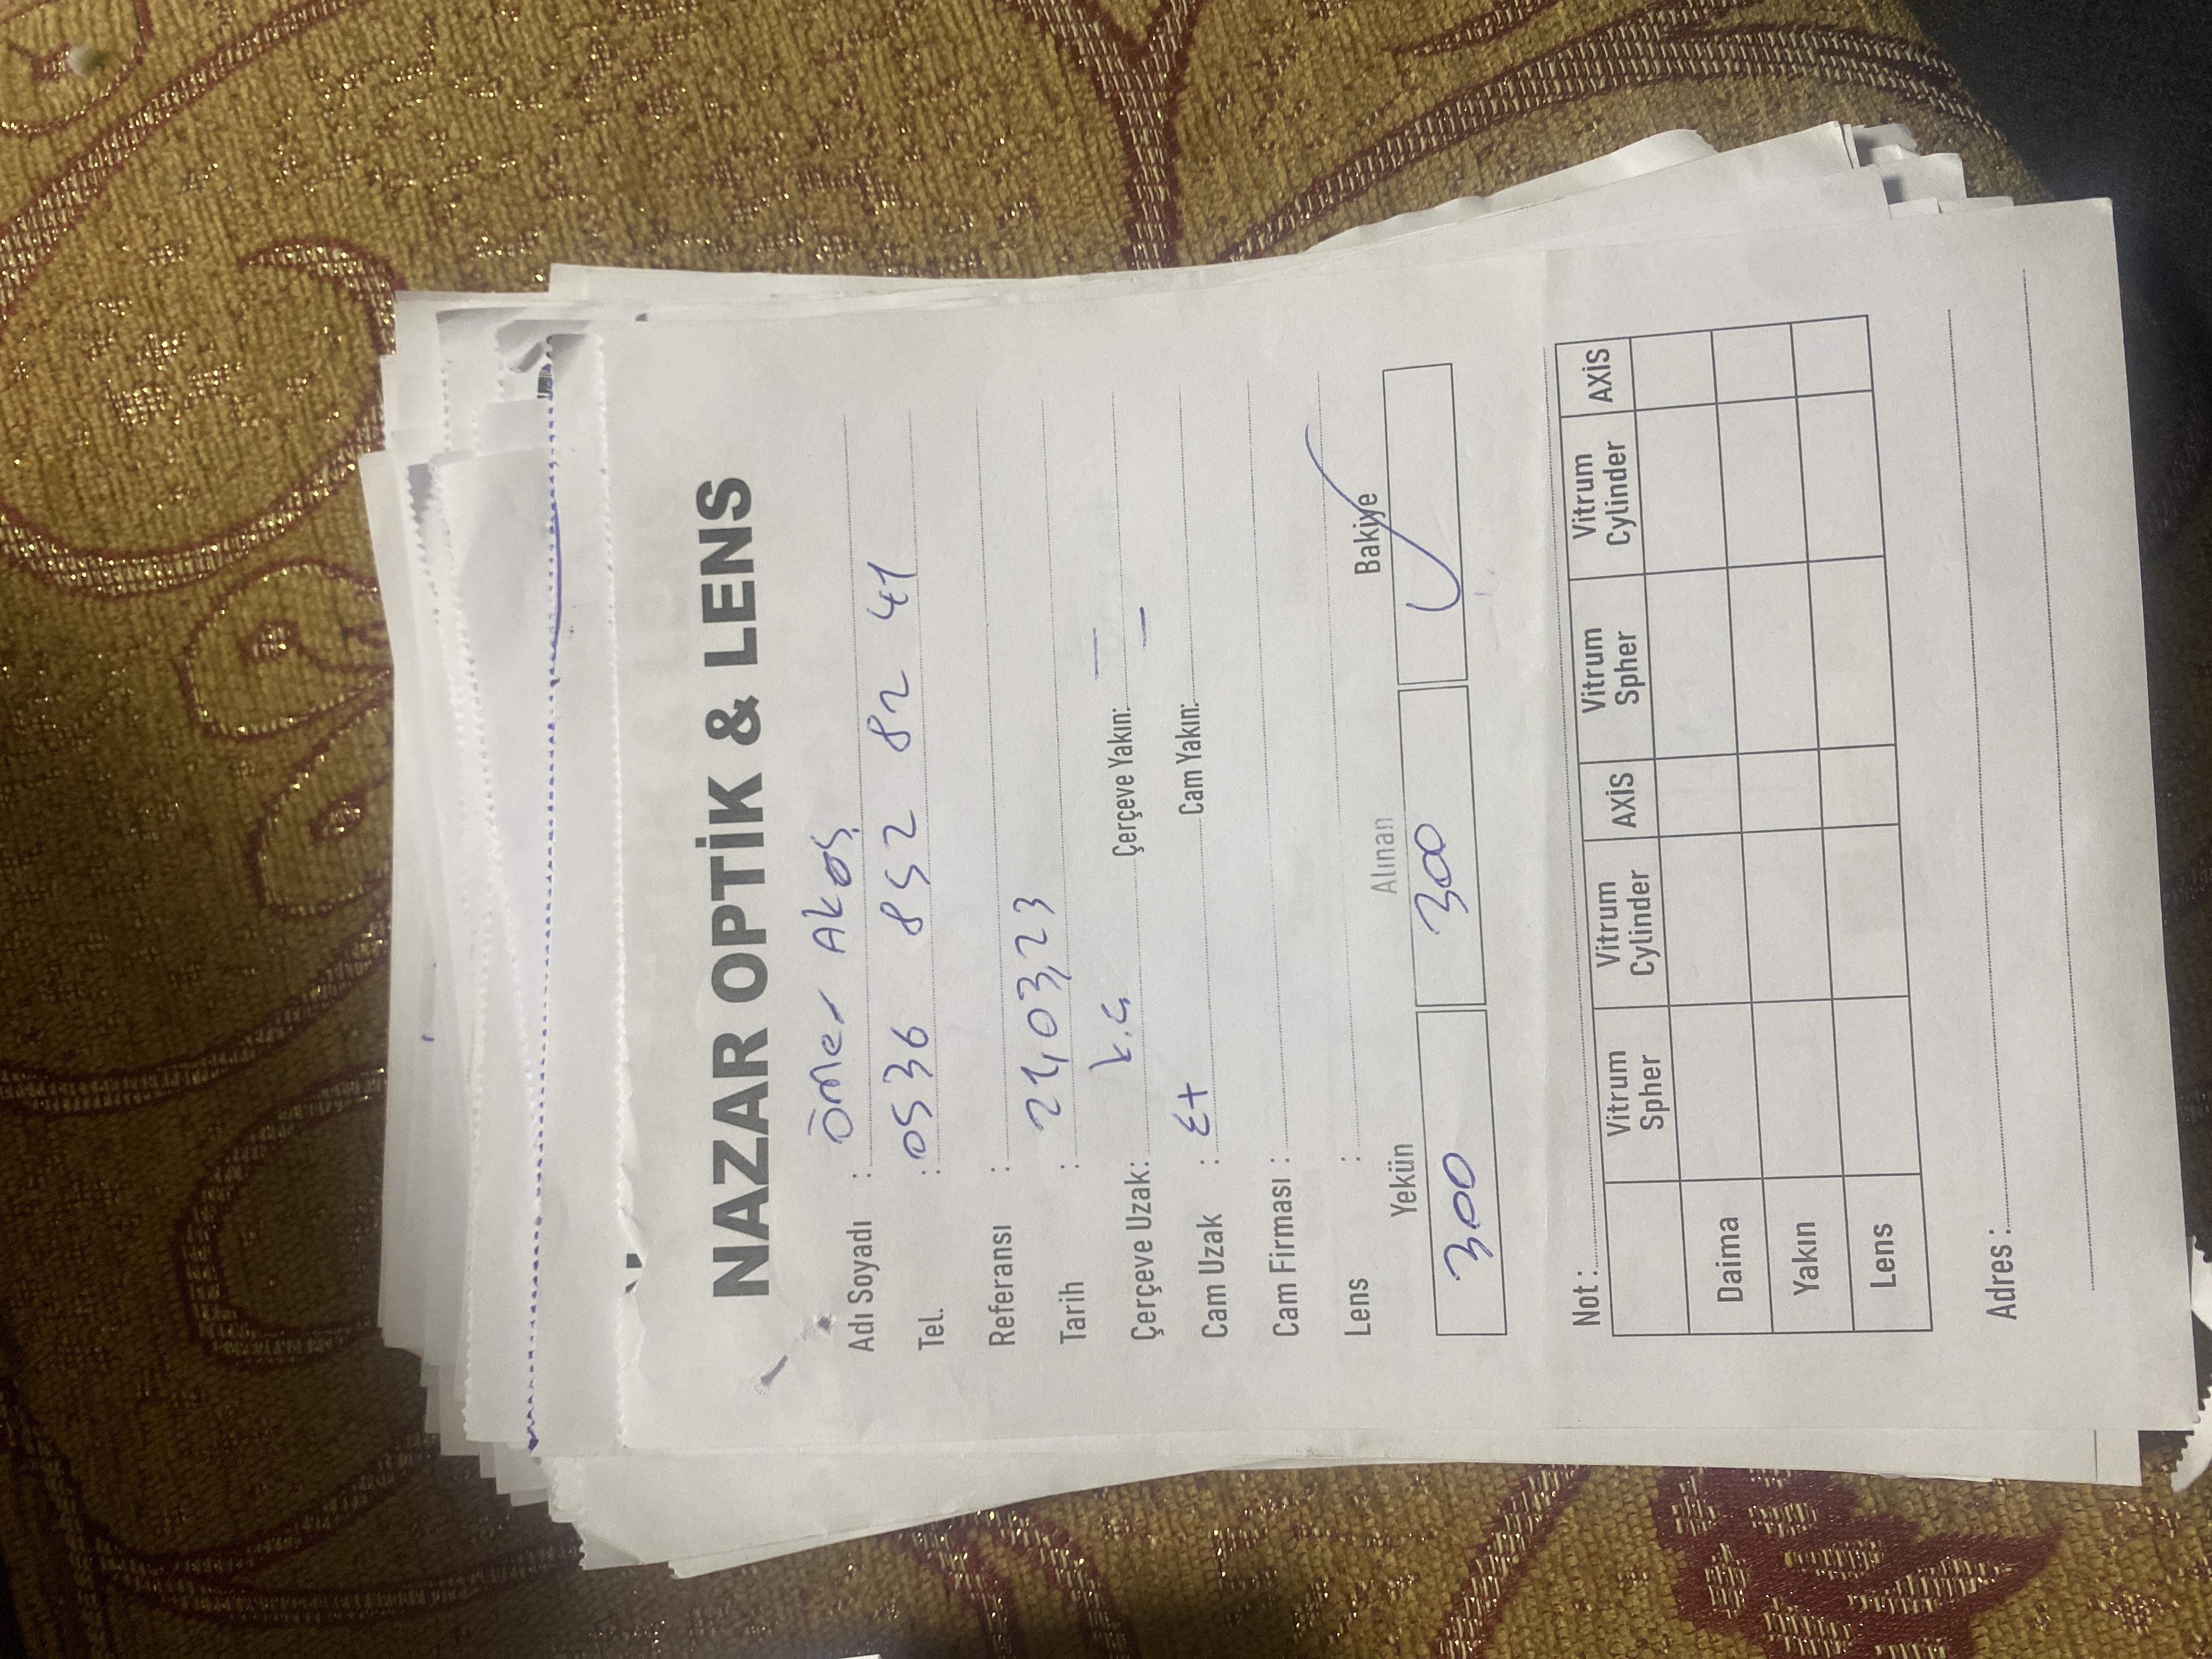 NAZAR OPTİK & LENS
Adı Soyadı : Ömer Akoş
Tel. : 0536 852 82 41
Referansı :
Tarih : 21,03,23
Çerçeve Uzak: k.G Çerçeve Yakın: —
Cam Uzak : Ex Cam Yakın: —
Cam Firması :
Lens :
Yekün Alınan Bakiye
300 300 ✓
Not :
Vitrum Spher Vitrum Cylinder AXİS Vitrum Spher Vitrum Cylinder AXİS
Daima
Yakın
Lens
Adres :